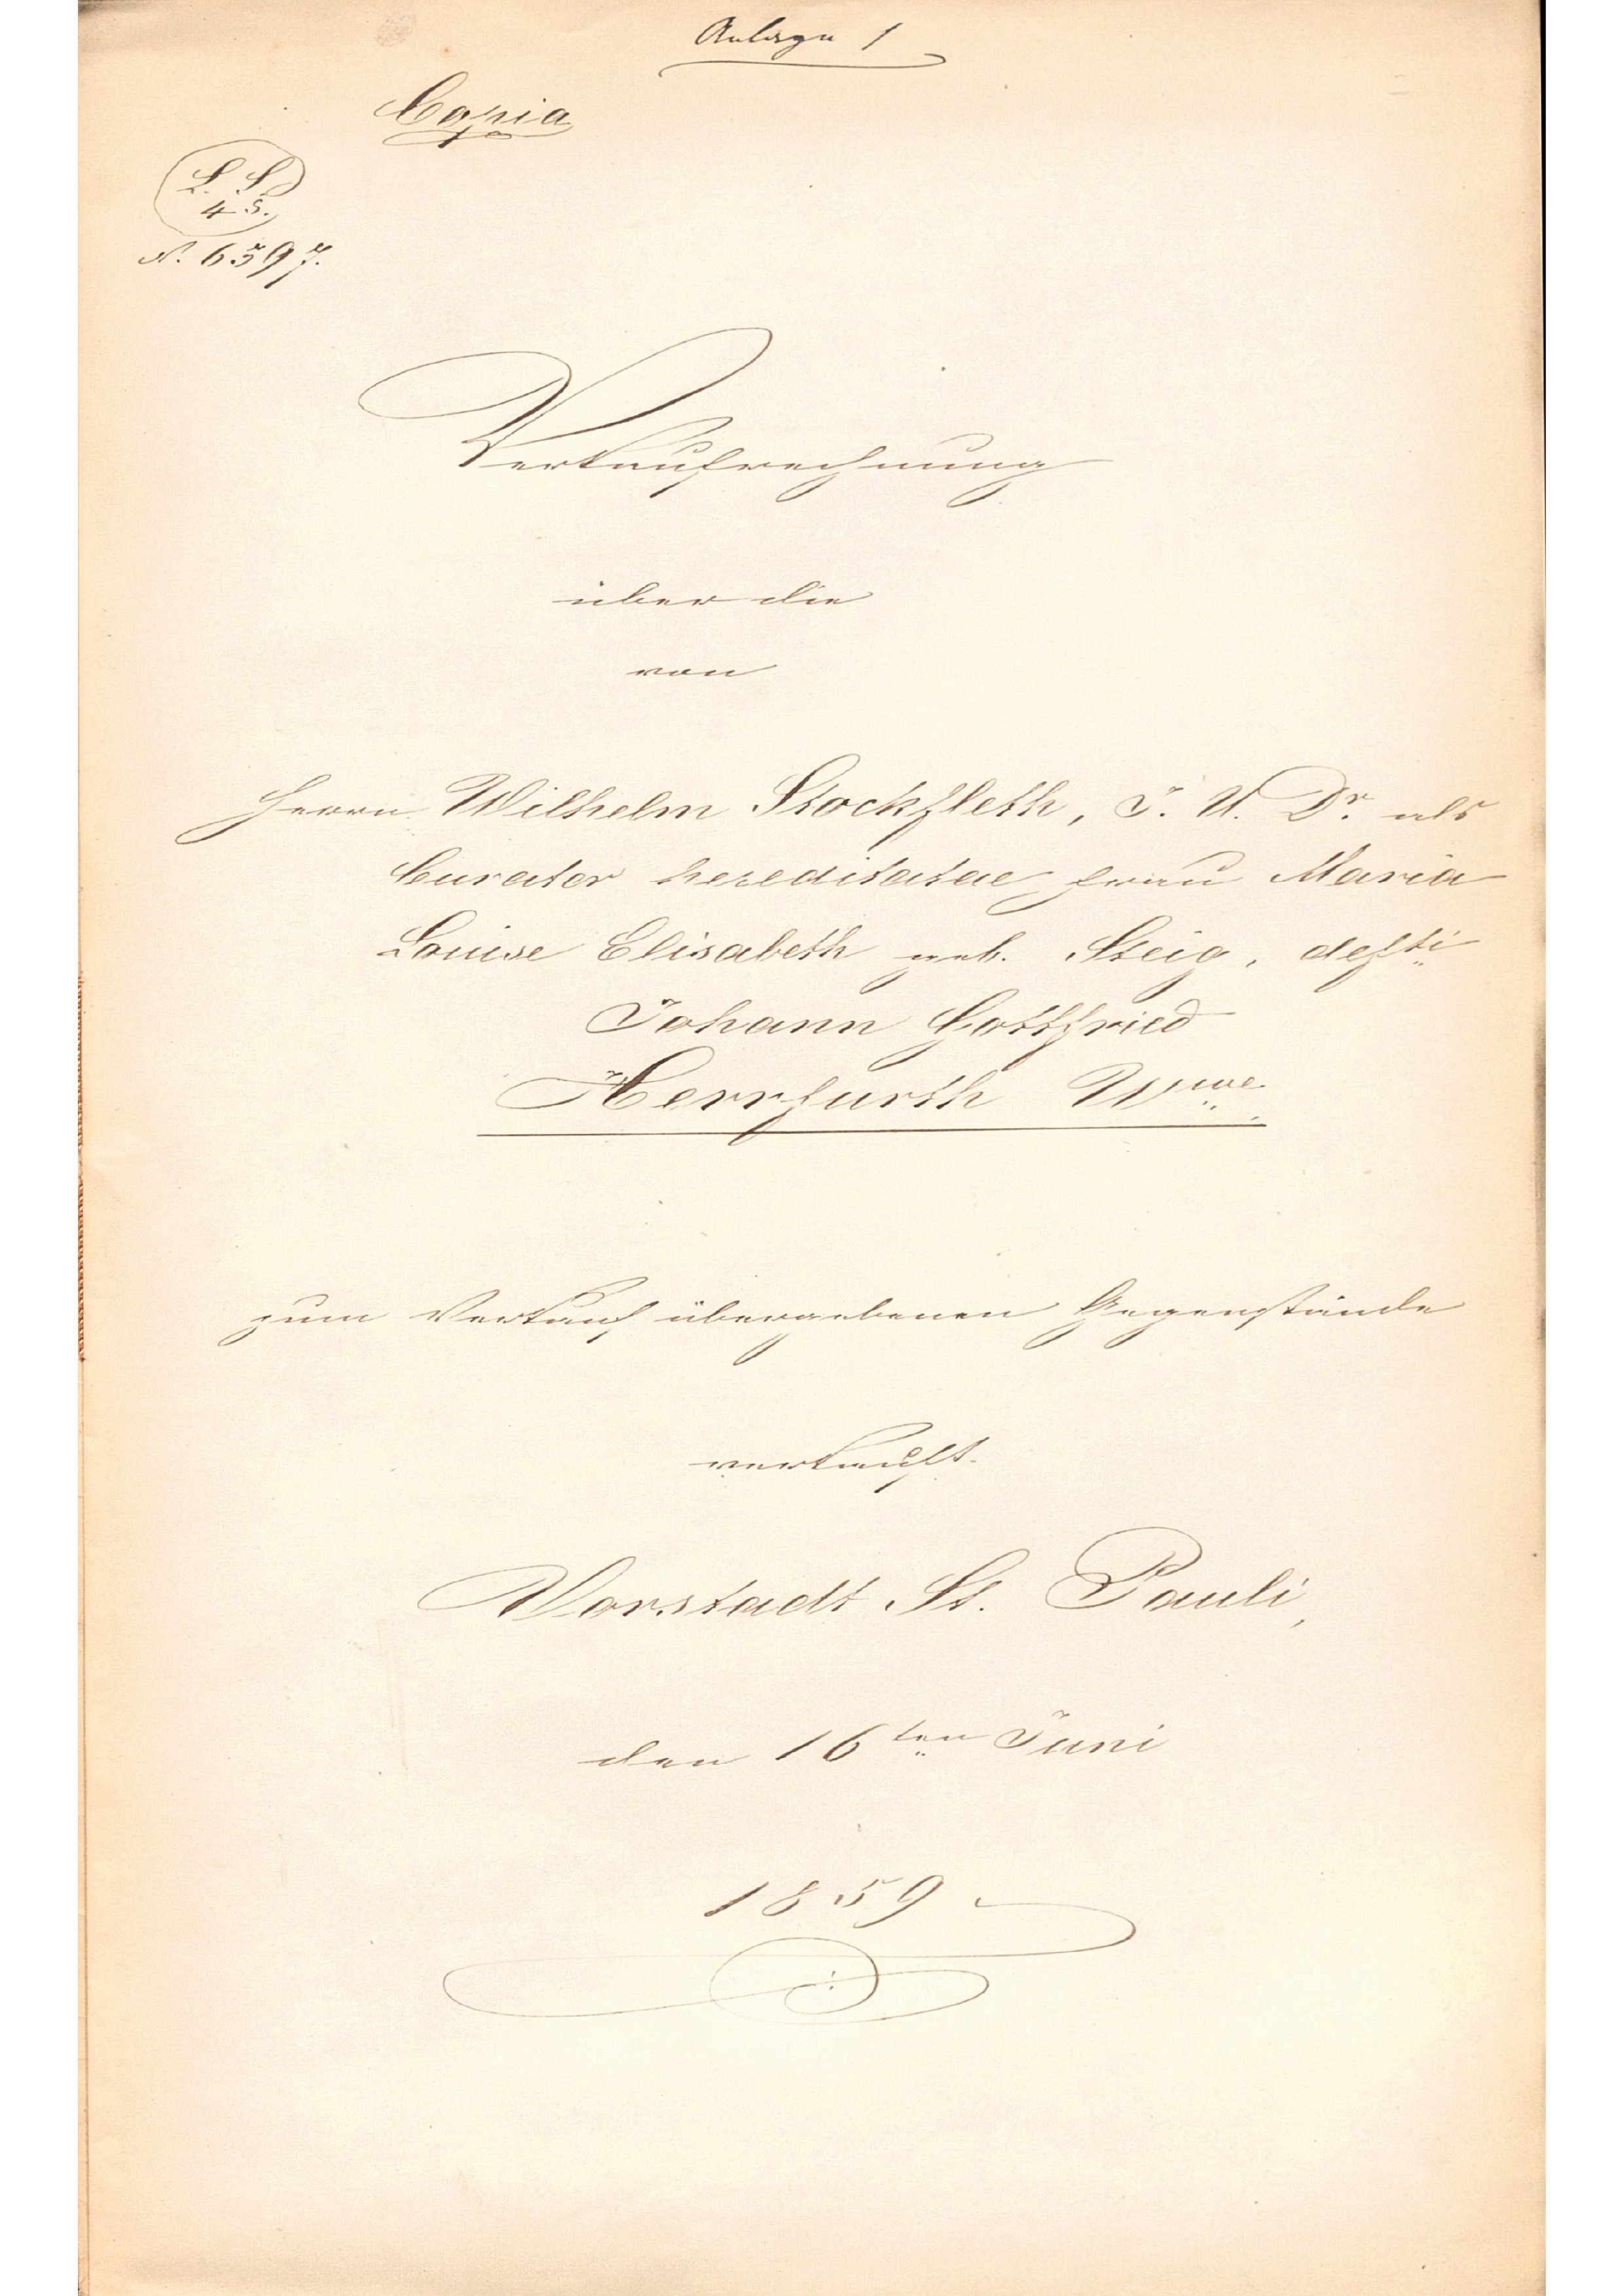 Anlage 1
Copia
L. S.
4 S.
N. 6597.
Verkaufrechnung
über die
von
Herrn Wilhelm Stockfleth, J. U. Dr. als
Curator hereditatae Frau Maria
Louise Elisabeth geb. Steig, defti
Johann Gottfried
Herrfurth Wwe.
zum Verkauf übergebenen Gegenstände
verkauft
Vorstadt St. Pauli,
den 16ten Juni
1859